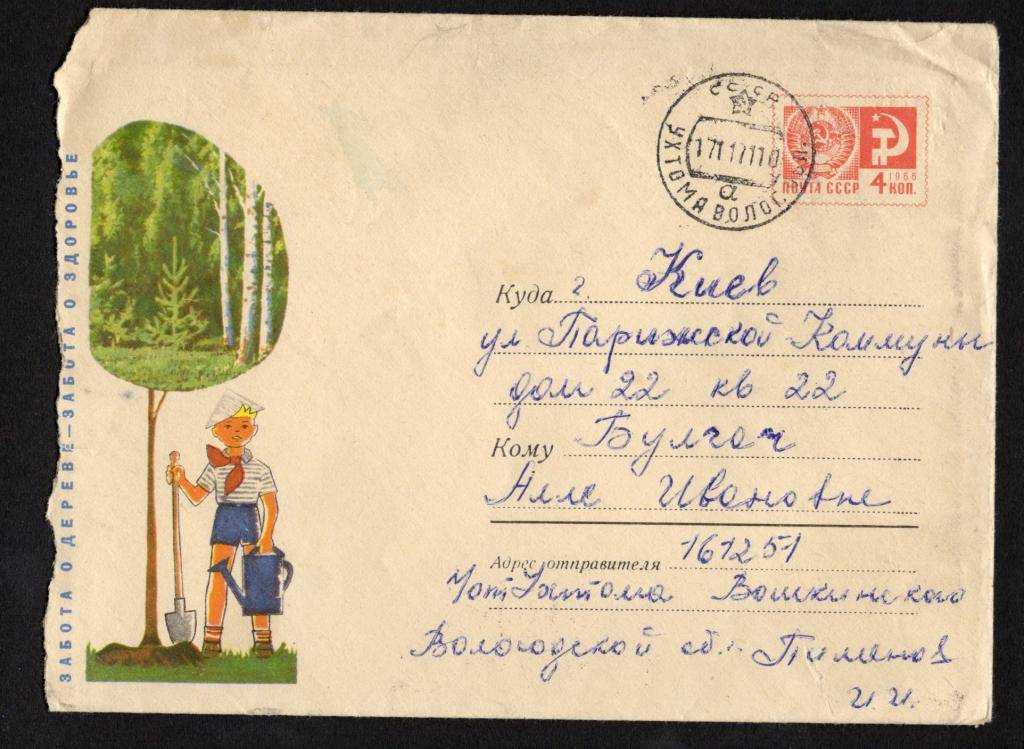 ЗАБОТА О ДЕРЕВЕ—ЗАБОТА О ЗДОРОВЬЕ
СССР
УХТОМА ВОЛОГ.
а
ПОЧТА СССР
1966
4 КОП.
Куда г. Киев
ул Парижской Коммуны
дом 22 кв 22
Кому Булгач
Алле Ивановне
Адрес отправителя 161251
Ухтома Вашкинского
Вологодской обл. Пименов
И. И.